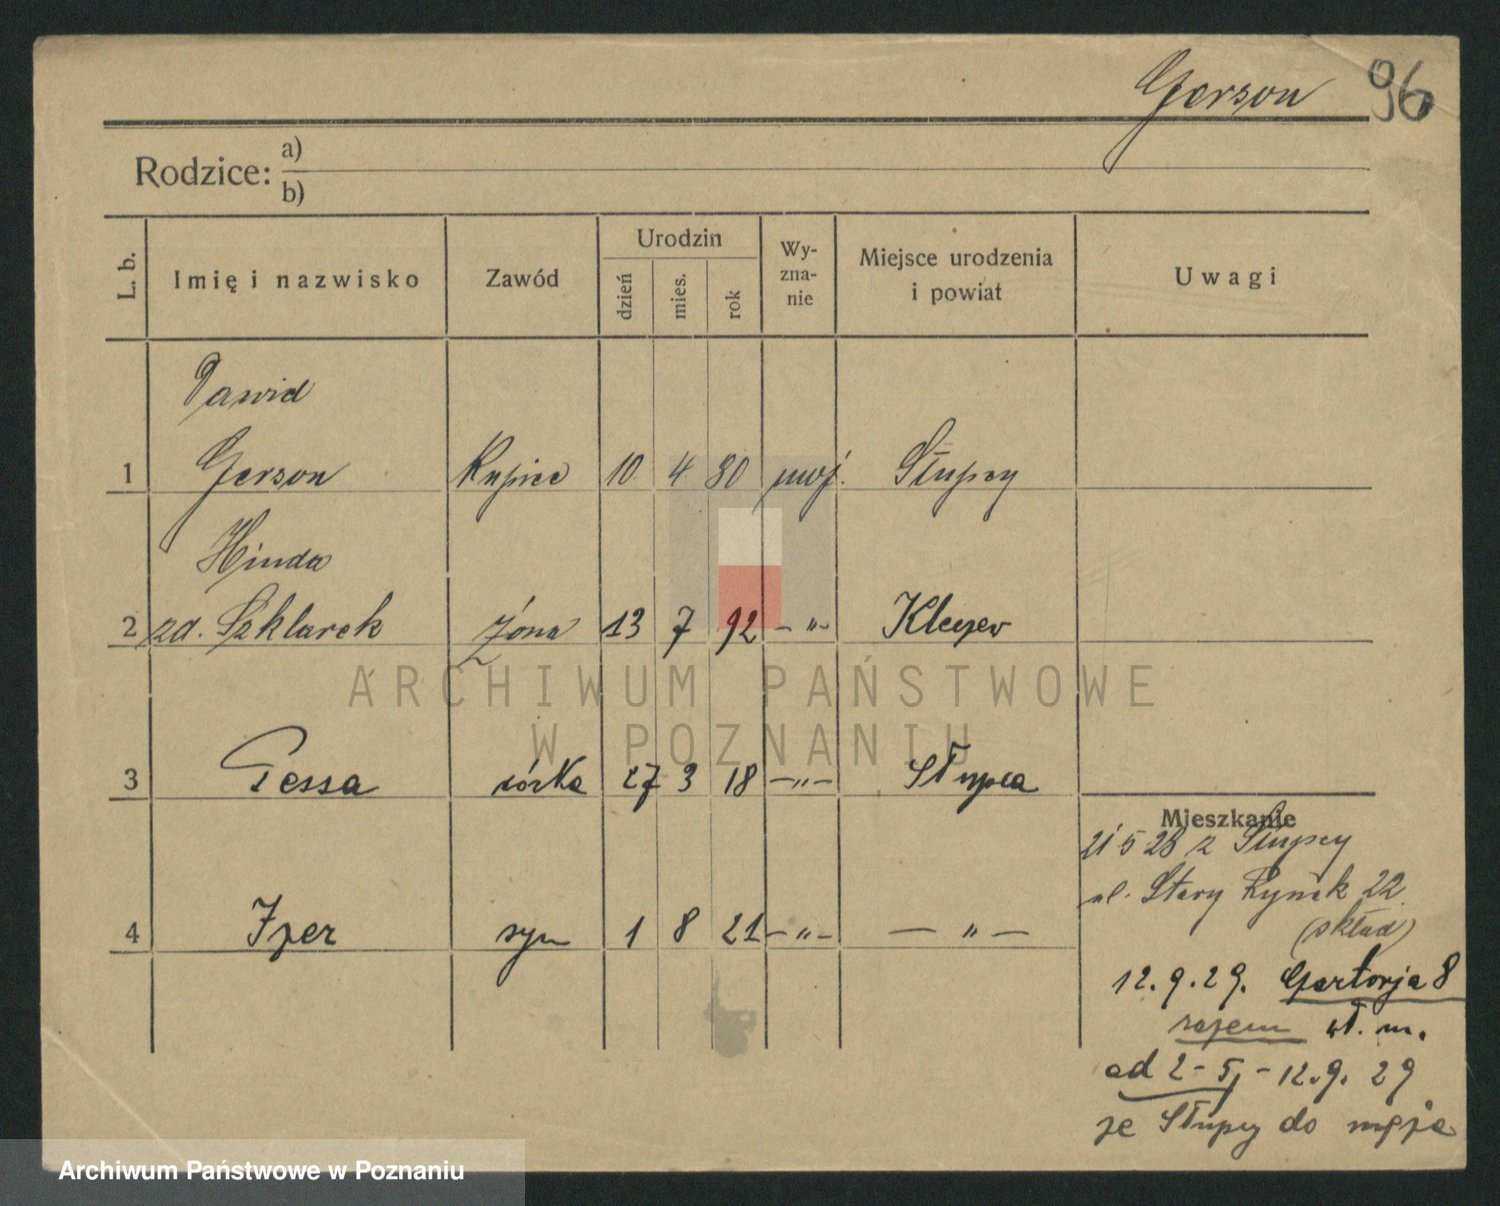 Gerson 96
Rodzice: a)
b)
L. b. Imię i nazwisko Zawód Urodzin dzień mies. rok Wy-zna-nie Miejsce urodzenia i powiat Uwagi
Dawid
1 Gerson Kupiec 10 4 80 mojż. Słupcy
Hinda
2 zd. Szklarek żona 13 7 92 -"- Kleczew
ARCHIWUM PAŃSTWOWE
W POZNANIU
3 Tessa córka 27 3 18 -"- Słupca
Mieszkanie
21 5 28 z Słupcy
ul. Stary Rynek 22
(skład)
4 syn 1 8 21 -"- - " -
12.9.29. 8
razem wł. m.
od 2-5, - 12.9.29
ze Słupcy do męża
Archiwum Państwowe w Poznaniu